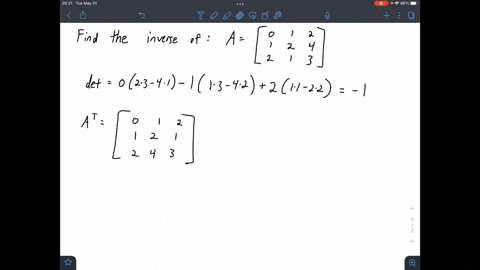 20:21 Tue May 31
88%
Find the inverse of : A = [ 0 1 2
1 2 4
2 1 3 ]
det = 0(2·3-4·1) - 1(1·3-4·2) + 2(1·1-2·2) = -1
Aᵀ = [ 0 1 2
1 2 1
2 4 3 ]